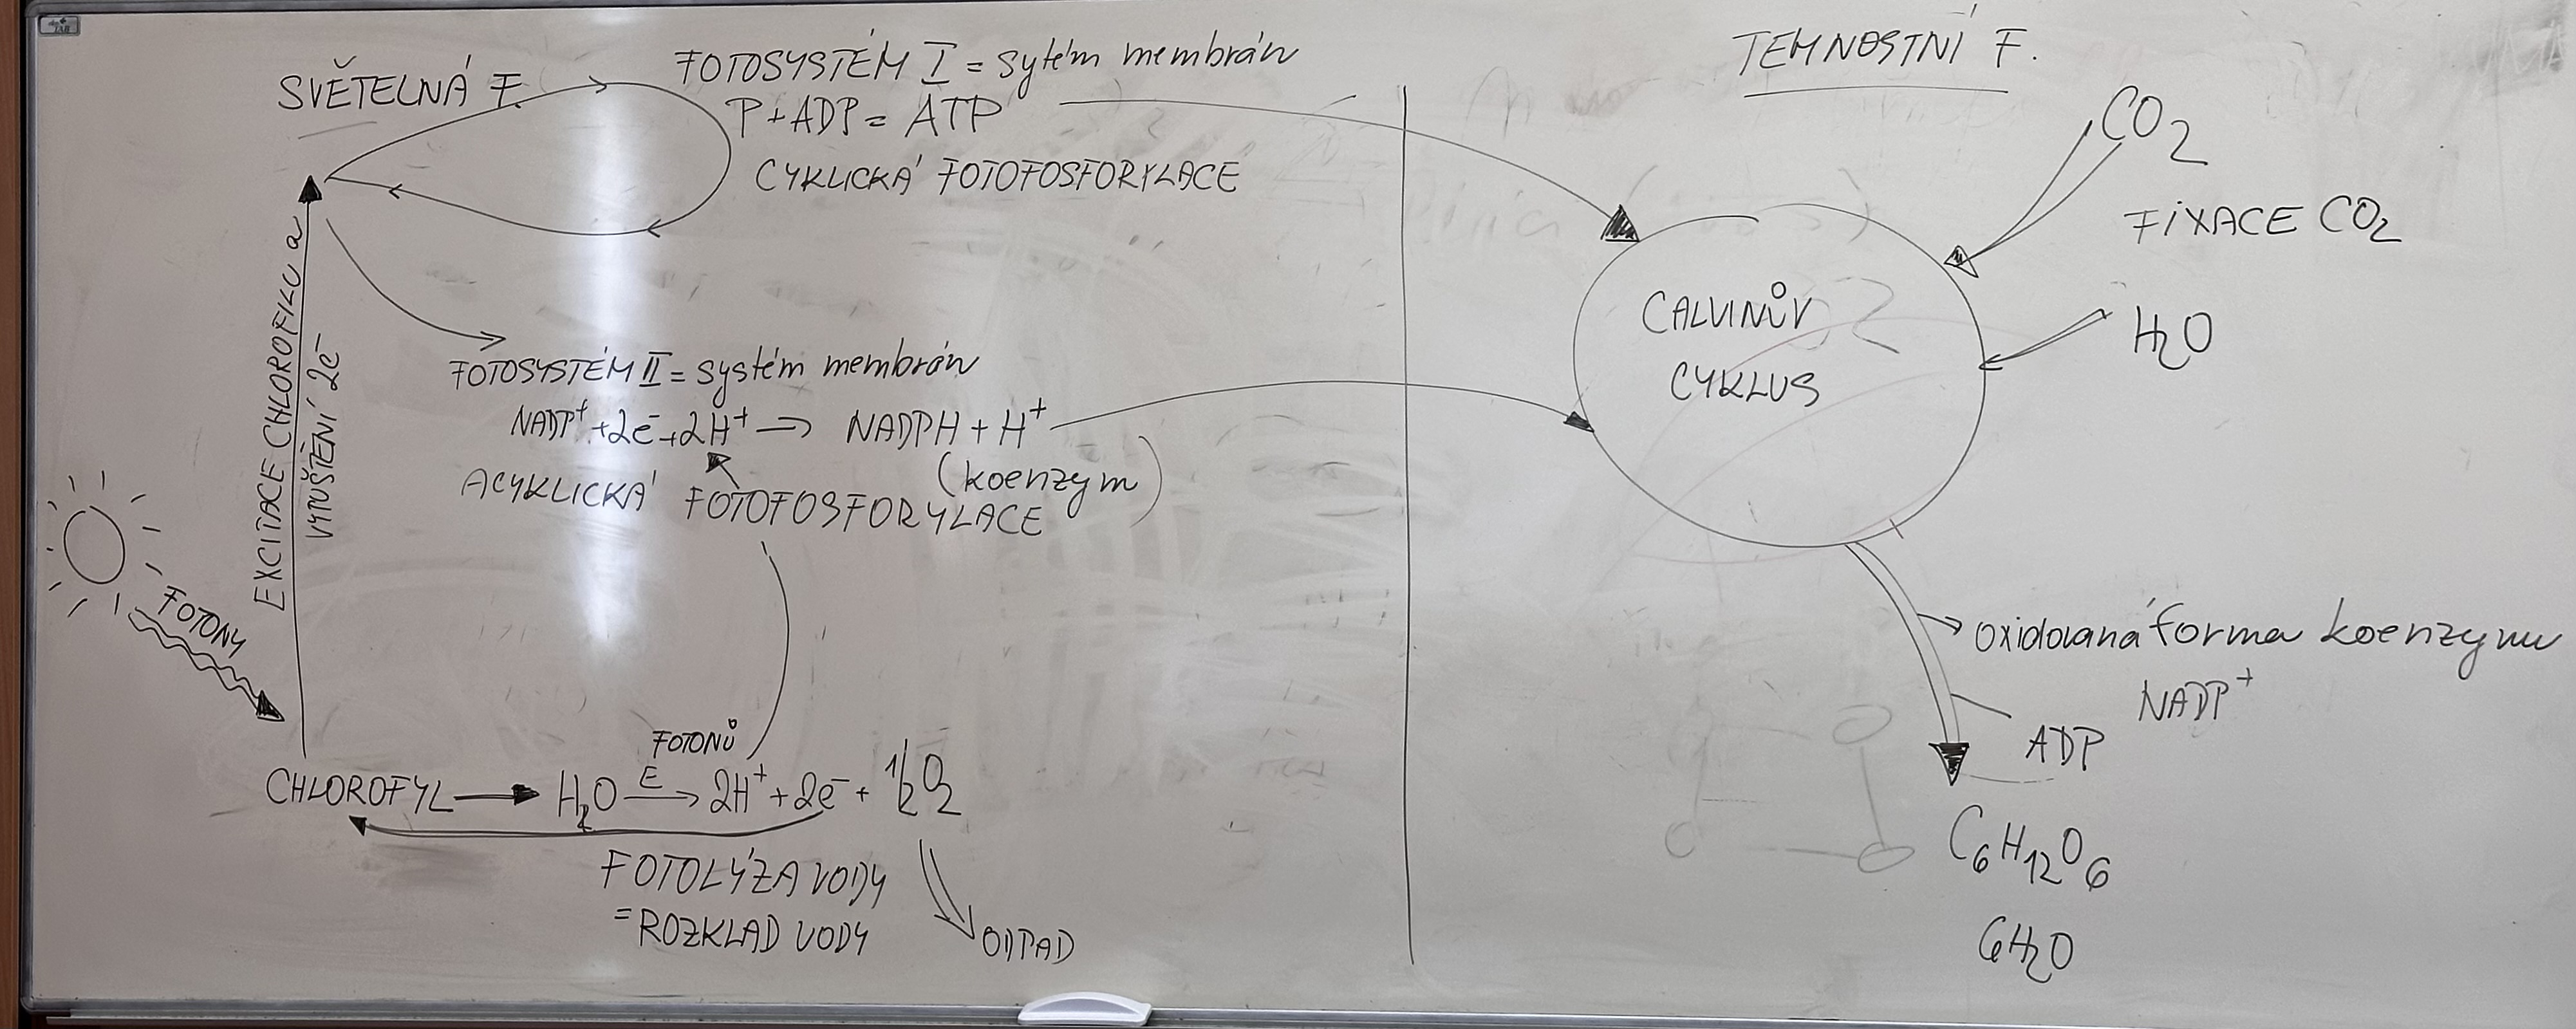 SVĚTELNÁ F.
FOTOSYSTÉM I = sytém membrán
P + ADP = ATP
CYKLICKÁ FOTOFOSFORYLACE
EXCITACE CHLOROFILU a
VYPUŠTĚNÍ 2e⁻
FOTOSYSTÉM II = systém membrán
NADP⁺ + 2e⁻ + 2H⁺ → NADPH + H⁺
(koenzym)
ACYKLICKÁ FOTOFOSFORYLACE
FOTONY
FOTONŮ
CHLOROFYL → H₂O E → 2H⁺ + 2e⁻ + 1/2 O₂
FOTOLÝZA VODY
= ROZKLAD VODY
ODPAD
TEMNOSTNÍ F.
CO₂
FIXACE CO₂
H₂O
CALVINŮV
CYKLUS
oxidovaná forma koenzymu
NADP⁺
ADP
C₆H₁₂O₆
6H₂O